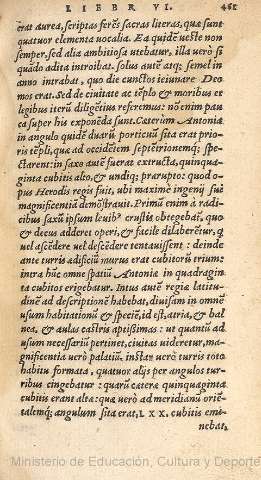 LIEBR VI. 461
erat aurea, scriptas ferẽs sacras literas, quæ sunt
quatuor elementa vocalia. Ea quidẽ veste non
semper, sed alia ambitiosa utebatur, illa verò si
quãdo adita introibat. solus autẽ atq; semel in
anno intrabat, quo die cunctos ieiunare Deo
mos erat. Sed de ciuitate ac tẽplo & moribus et
legibus iterũ diligẽtius referemus: nõ enim pau
ca super his exponẽda sunt. Cæterùm Antonia
in angulo quidẽ duarũ porticuũ sita erat prio-
ris tẽpli, quæ ad occidẽtem septẽtrionemq; spe-
ctarent: in saxo autẽ fuerat extructa, quinqua-
ginta cubitis alto, & undiq; prærupto: quod o-
pus Herodis regis fuit, ubi maximè ingenij sui
magnificentiã demõstrauit. Primũ enim à radi-
cibus saxũ ipsum leuib⁹ crustis obtegebāt, quo
& decus adderet operi, & facile dilaberẽtur, q
uel ascẽdere uel descẽdere tentauissent: deinde
ante turris ædificiũ murus erat cubitorũ trium:
intra hũc omne spatiũ Antonia in quadragin
ta cubitos erigebatur. Intus autẽ regiæ latitu-
dinẽ ad descriptionẽ habebat, diuisam in omnẽ
usum habitationũ & speciẽ, id est, atria, & bal
nea, & aulas castris aptißimas: ut quantũ ad
usum necessariũ pertinet, ciuitas videretur, ma-
gnificentia verò palatiũ. instar verò turris toto
habitu formata, quatuor alijs per angulos tur-
ribus cingebatur: quarũ cætere quinquaginta
cubitis erant altæ: quæ verò ad meridianũ ori-
talemq; angulum sita erat, LXX. cubitis emi-
nebat,
Ministerio de Educación, Cultura y Deporte